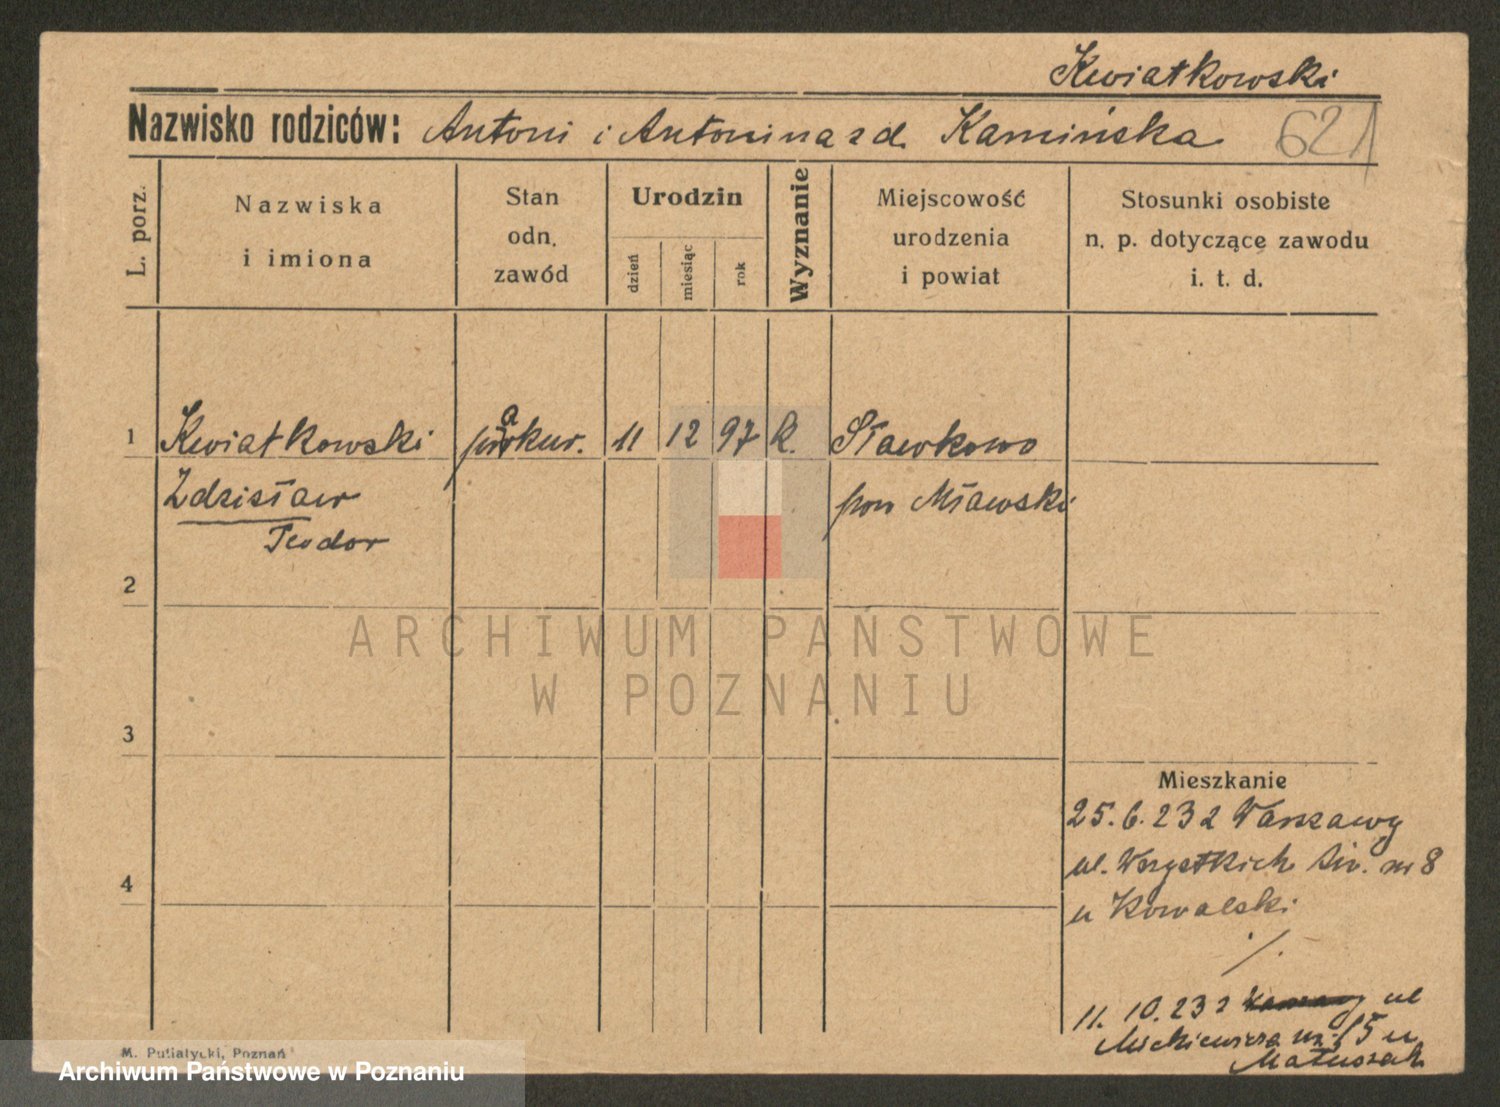 Kwiatkowski
Nazwisko rodziców: Antoni i Antonina z d. Kamińska 621
L. porz.
Nazwiska
i imiona
Stan
odn.
zawód
Urodzin
dzień
miesiąc
rok
Wyznanie
Miejscowość
urodzenia
i powiat
Stosunki osobiste
n. p. dotyczące zawodu
i. t. d.
1 Kwiatkowski prakur. 11 12 97 k. Sławkowo
Zdzisław pow Mławski
Teodor
2
ARCHIWUM PAŃSTWOWE
W POZNANIU
3
Mieszkanie
25. 6. 23 z Warszawy
4 ul. Wszystkich Św. nr 8
u Kowalski
11. 10. 23 z ul
Mickiewicza nr. 15 u
Matuszak
M. Putiatycki, Poznań
Archiwum Państwowe w Poznaniu